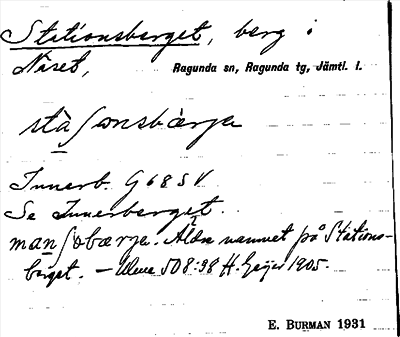 Stationsberget, berg i
Näset, Ragunda sn, Ragunda tg, Jämtl. l.
staʃonsbærje
Innerb. G68SV
Se Innerberget.
manʃobærje. Äldre namnet på Stations-
berget. – 508:98 H. Geijer 1905.
E. BURMAN 1931